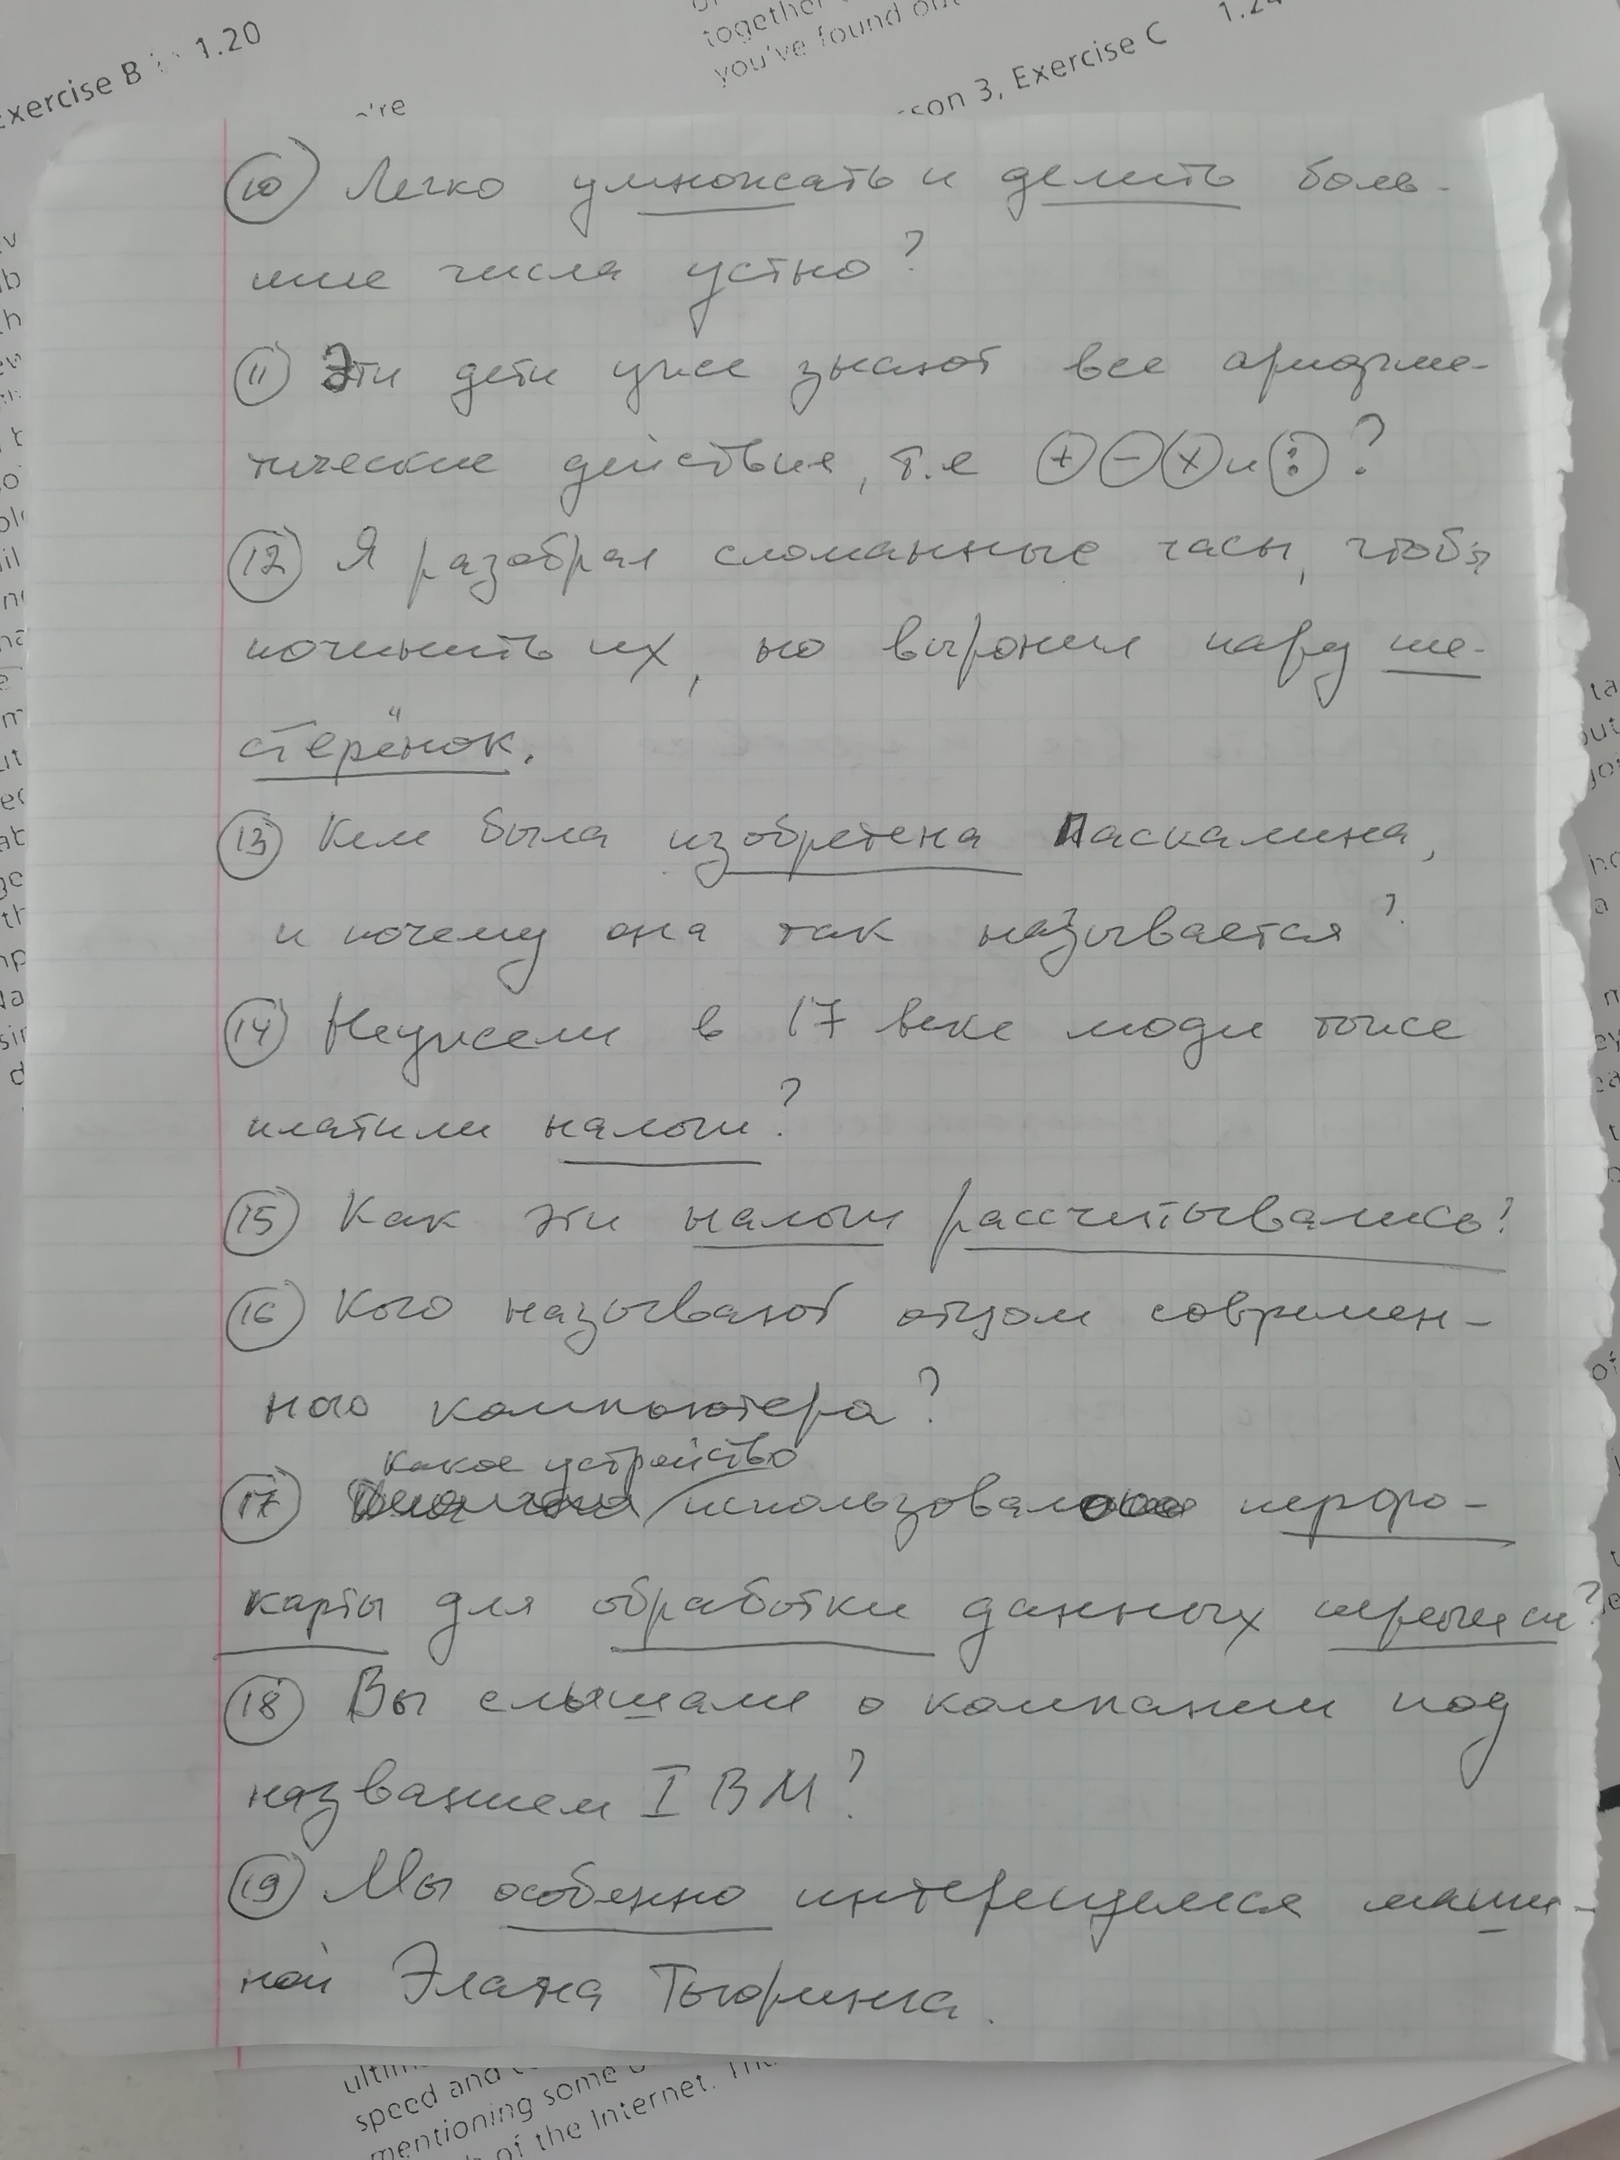 Exercise B 1.20
together
you've found out
son 3, Exercise C 1.24
're
10 Легко умножать и делить боль-
шие числа устно?
11 Эти дети уже знают все арифме-
тические действия, т.е + - × и : ?
12 Я разобрал сломанные часы, чтобы
починить их, но выронил пару ше-
стерёнок.
13 Кем была изобретена Паскалина,
и почему она так называется?
14 Неужели в 17 веке люди тоже
платили налоги?
15 Как эти налоги рассчитывались?
16 Кого называют отцом современ-
ного компьютера?
какое устройство
17 использовало перфо-
карты для обработки данных переписи?
18 Вы слышали о компании под
названием IBM?
19 Мы особенно интересуемся маши-
ной Элана Тьюринга.
speed and
mentioning some
of the Internet.